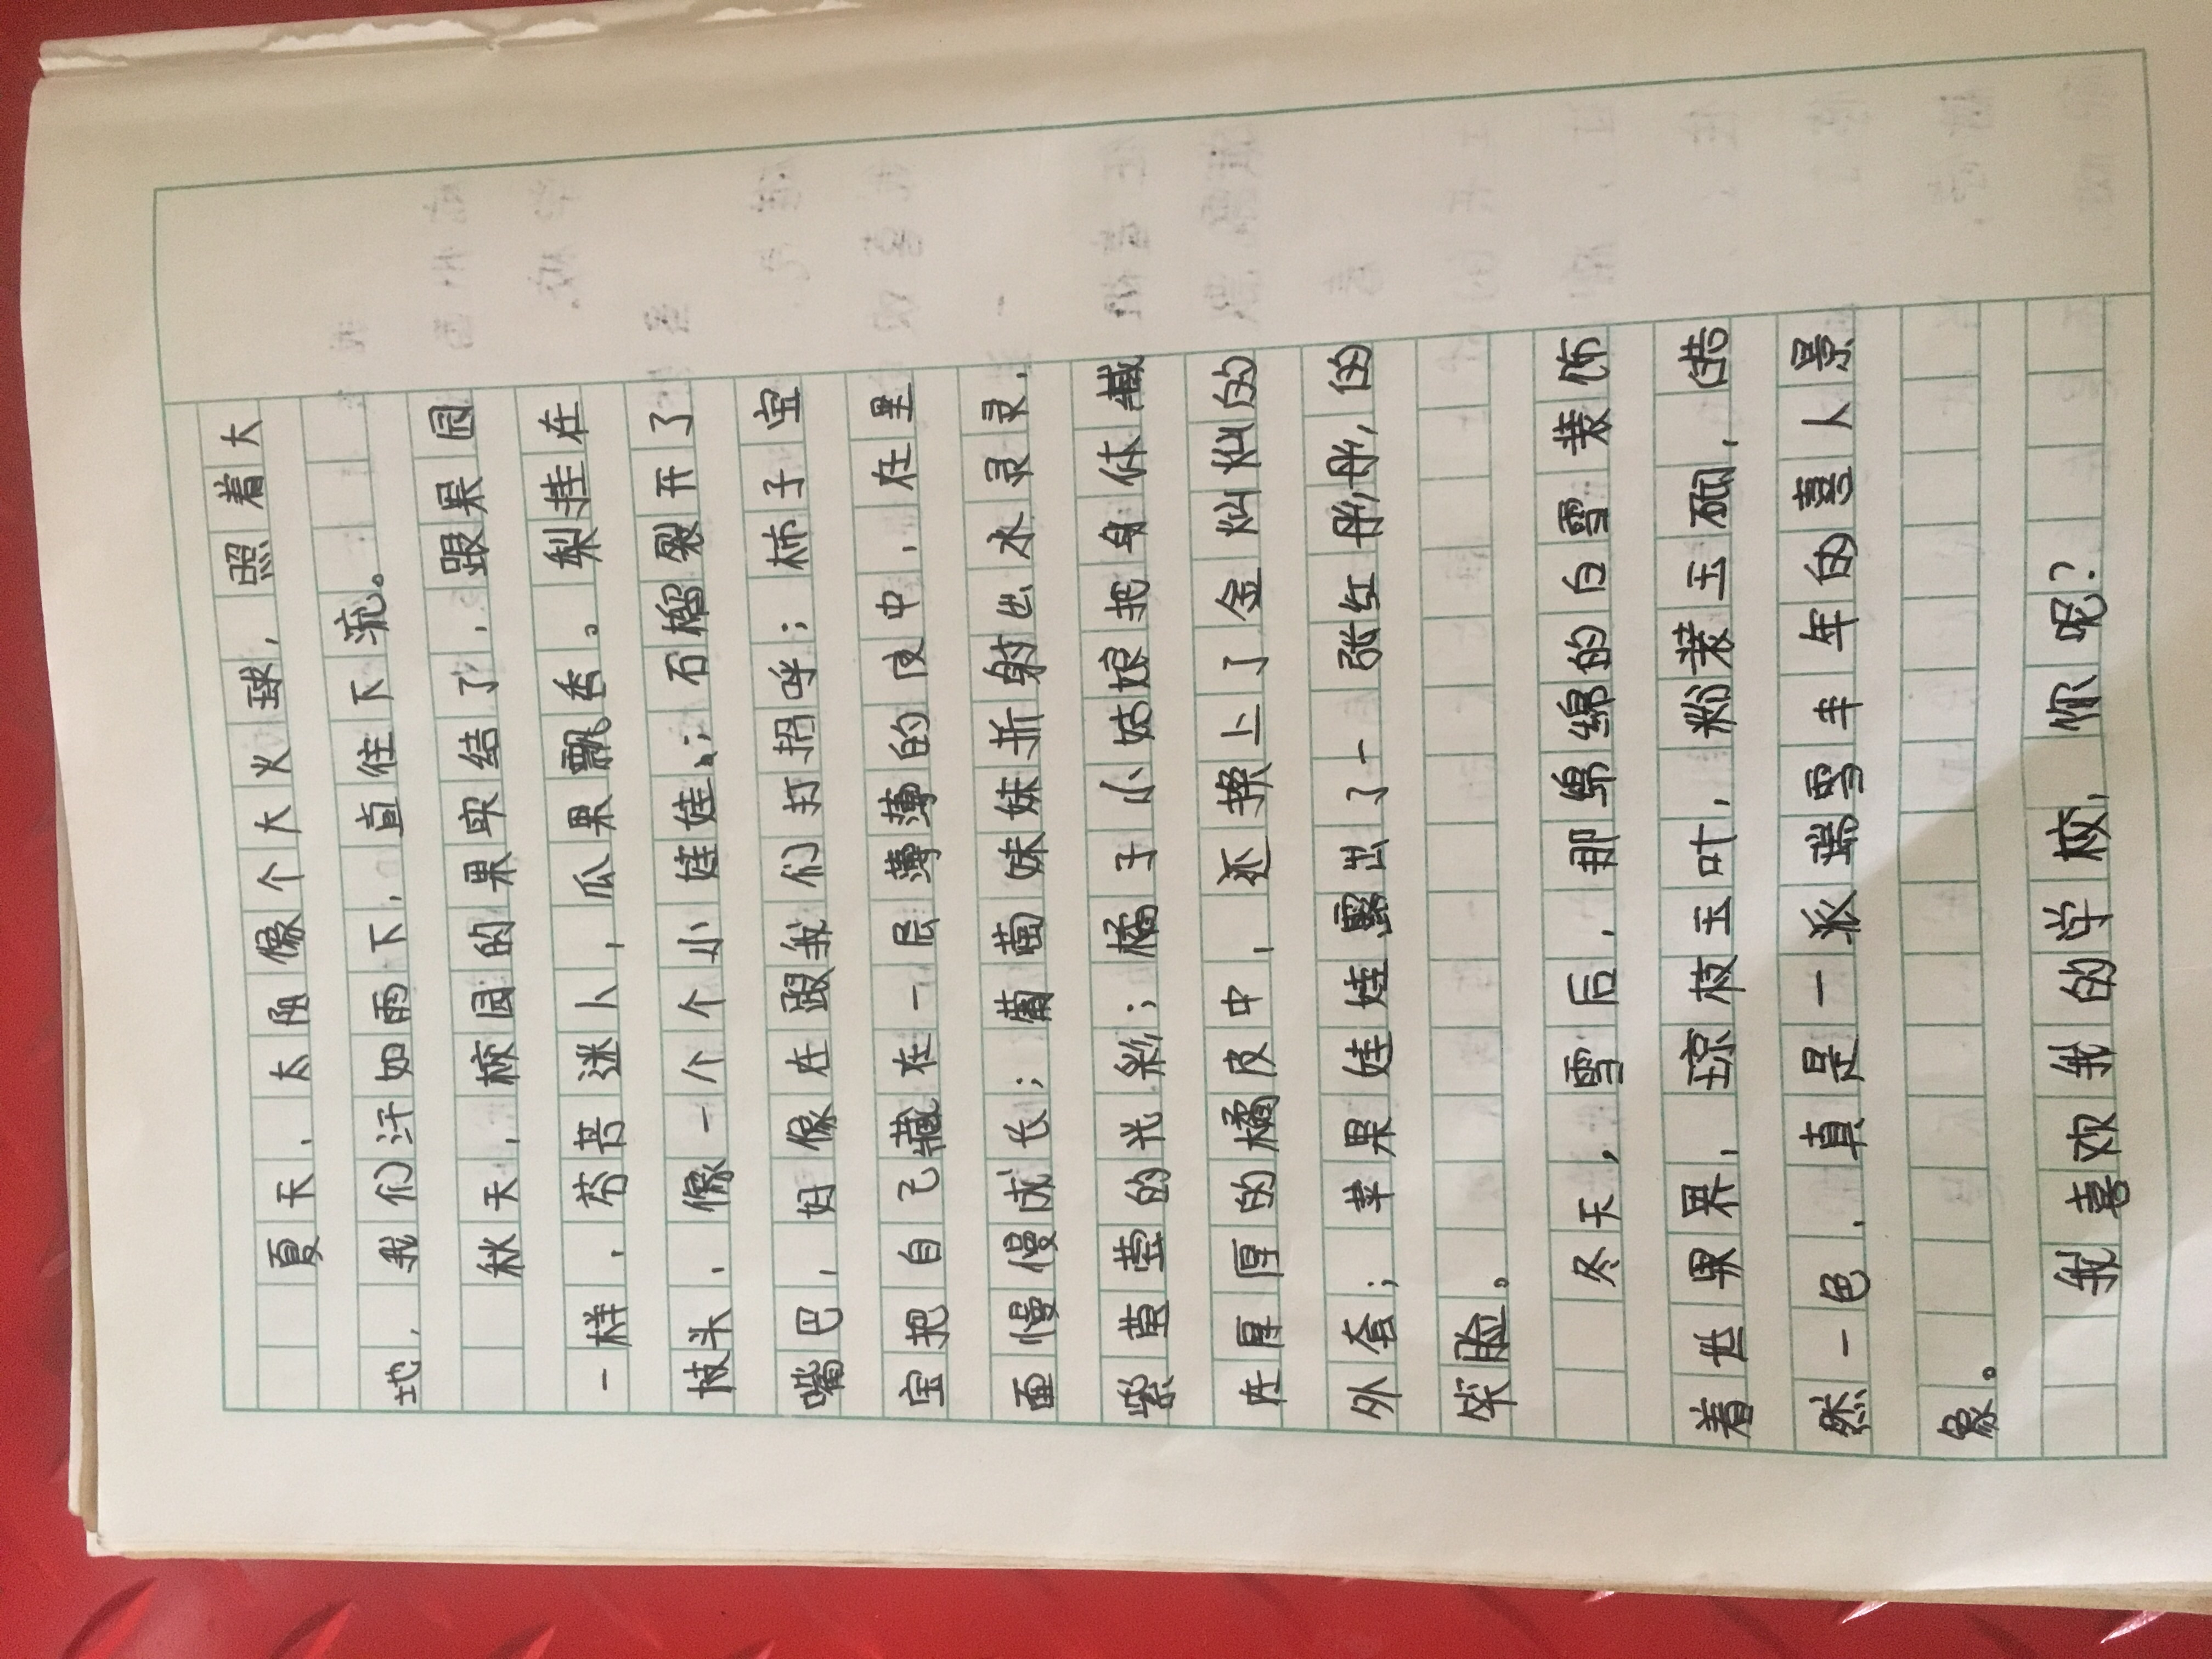 夏天，太阳像个大火球，照着大
地，我们汗如雨下，直往下流。
秋天，校园的果实结了，跟果园
一样，芬芳迷人，瓜果飘香。梨挂在
枝头，像一个个小娃娃；石榴裂开了
嘴巴，好像在跟我们打招呼；柿子宝
宝把自己藏在一层薄薄的皮中，在里
面慢慢成长；葡萄妹妹折射出水灵灵，
紫莹莹的光彩；橘子小姑娘把身体藏
在厚厚的橘皮中，还换上了金灿灿的
外套；苹果娃娃露出了一张红彤彤的
笑脸。
冬天，雪后，那绵绵的白雪装饰
着世界，琼枝玉叶，粉装玉砌，皓
然一色，真是一派瑞雪丰年的喜人景
象。
我喜欢我的学校，你呢？